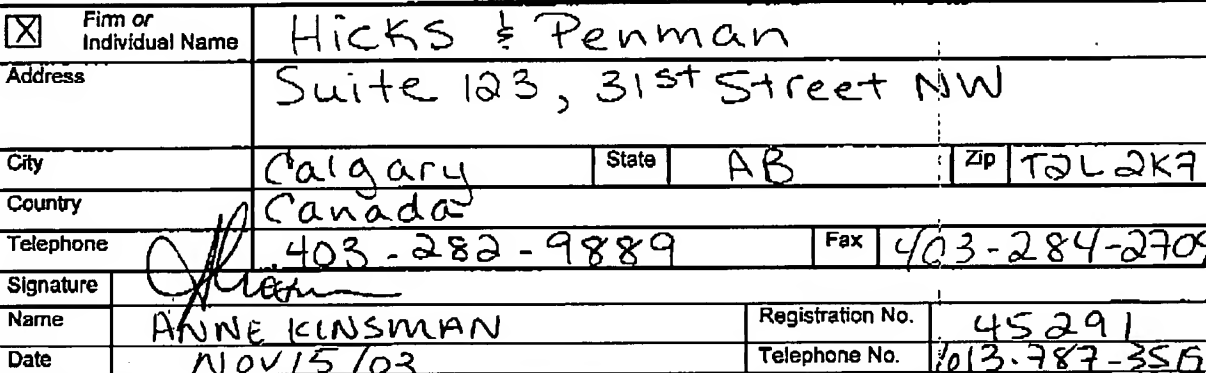 X Firm or Individual Name Hicks & Penman
Address Suite 123, 31st Street NW
City Calgary State AB Zip T2L 2K7
Country Canada
Telephone 403-282-9889 Fax 403-284-2709
Signature
Name ANNE KINSMAN Registration No. 45291
Date NOV 15/03 Telephone No.